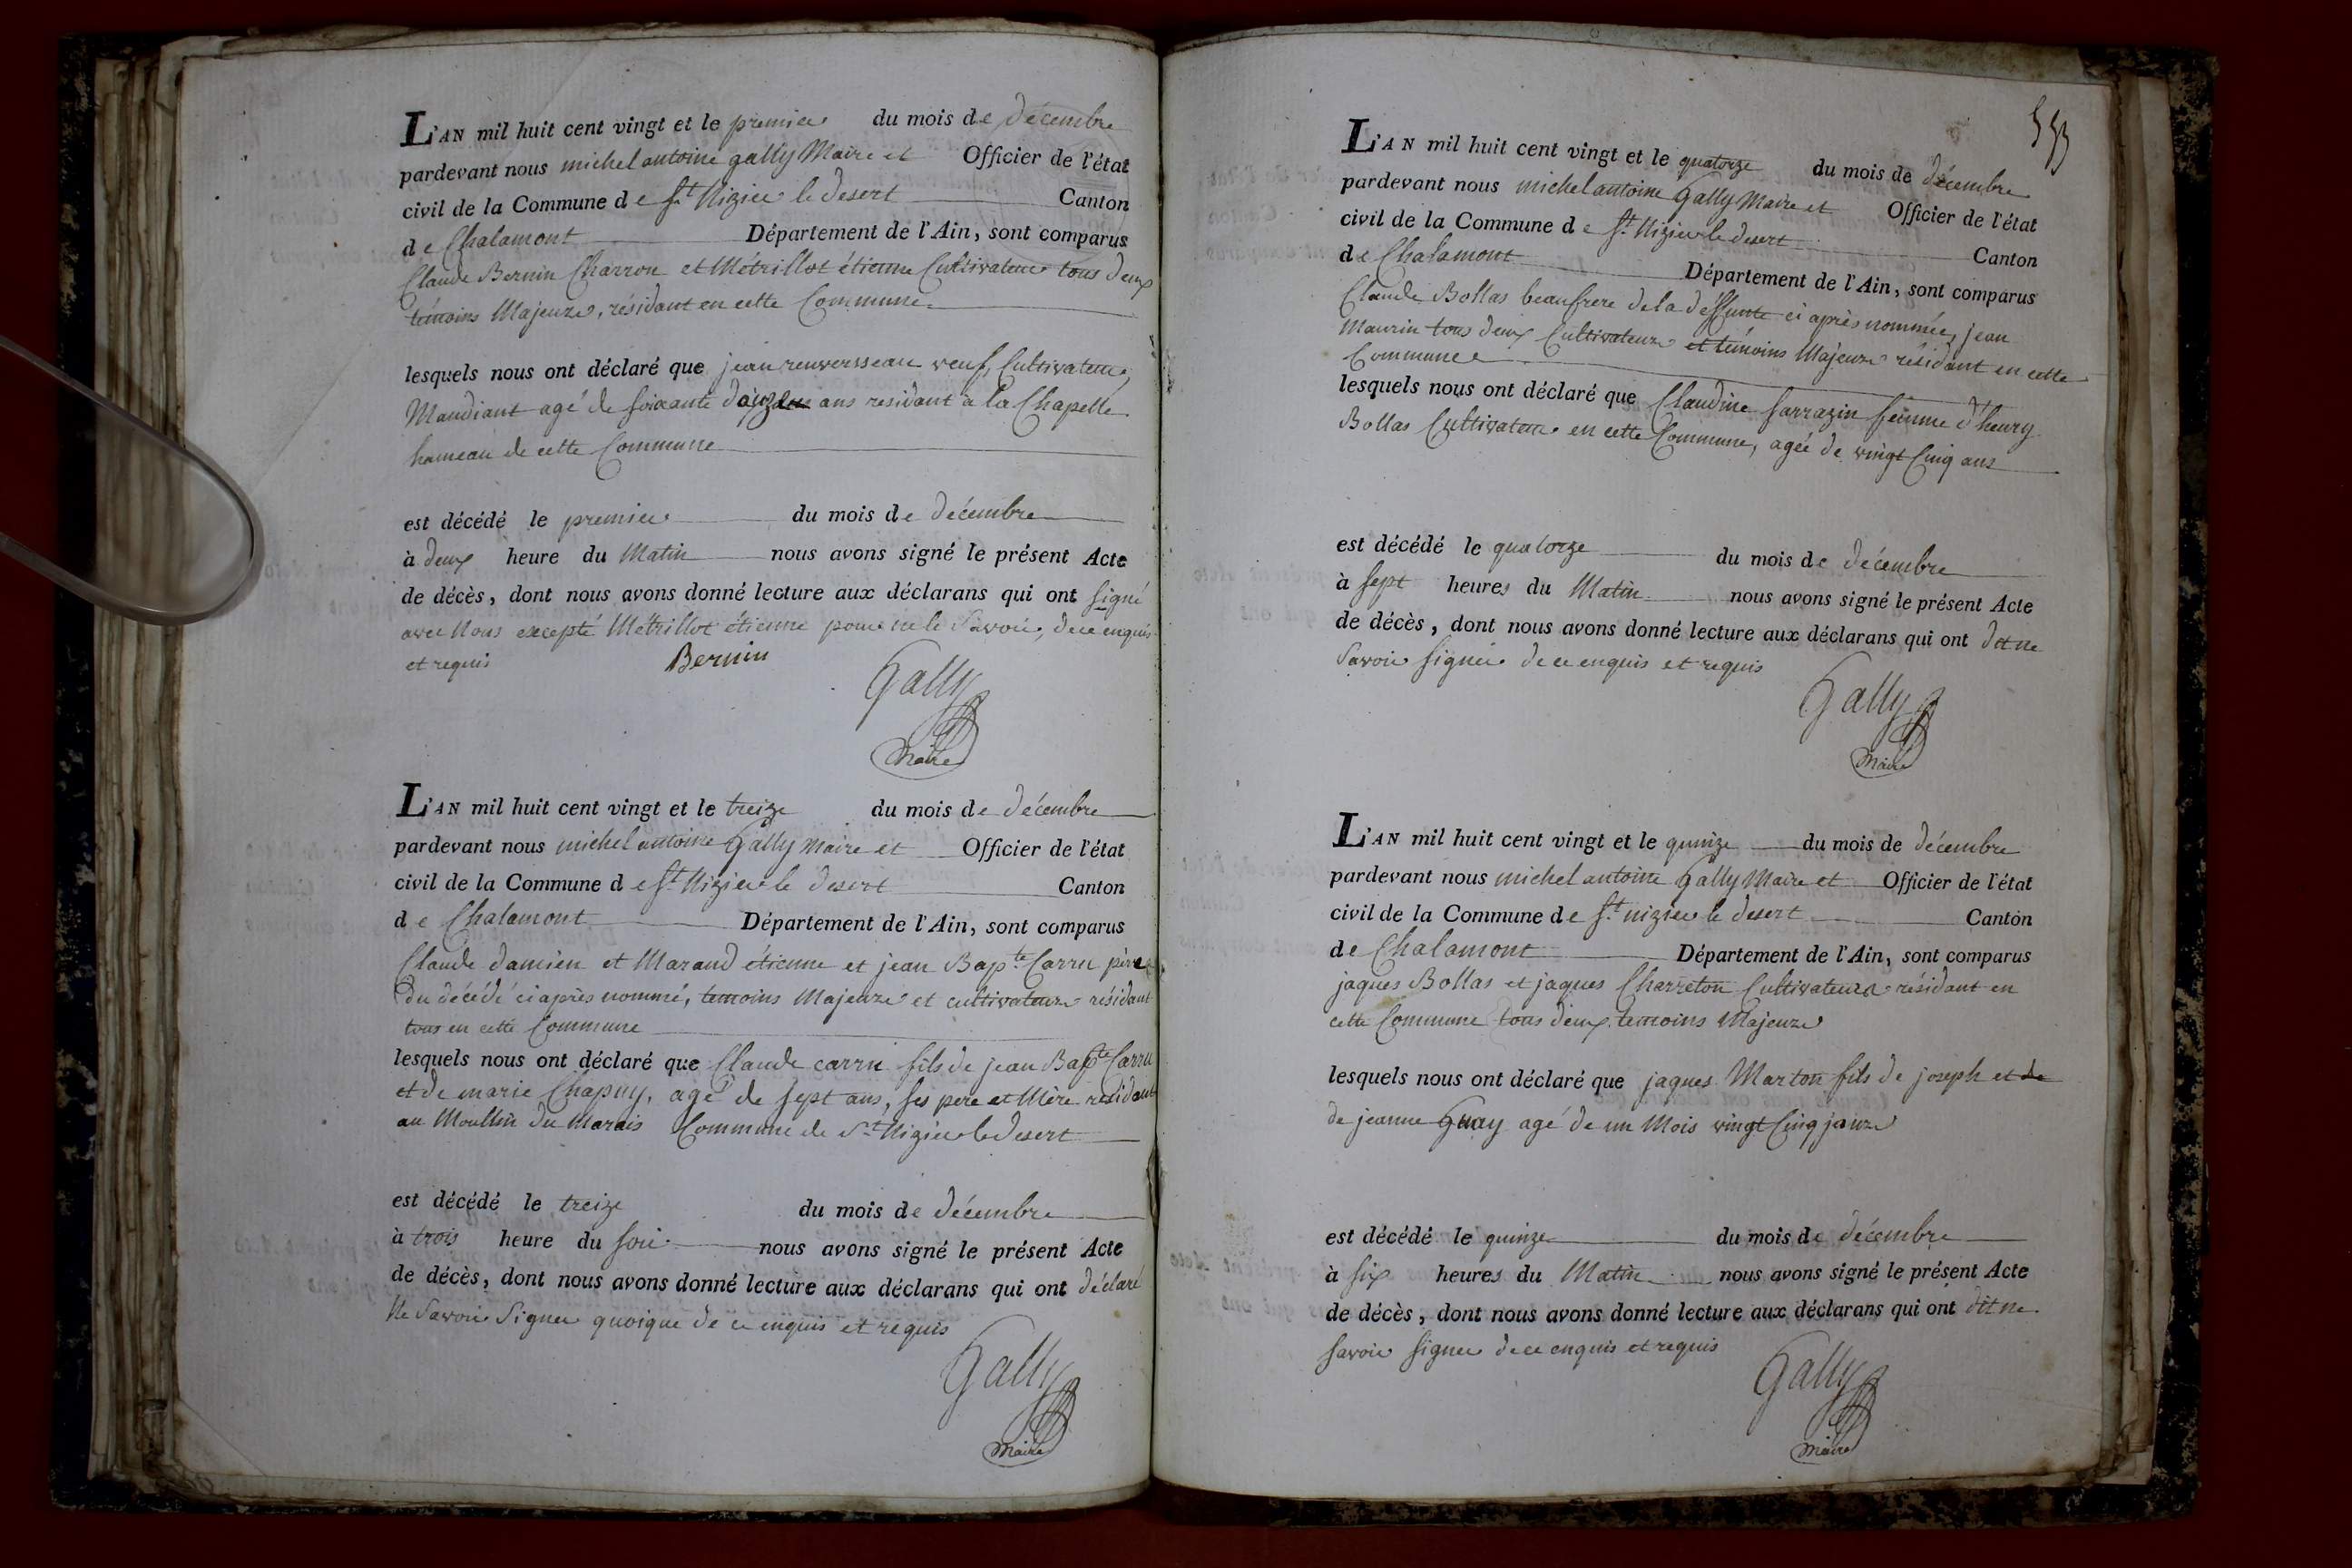 L'AN mil huit cent vingt et le premier du mois de décembre
pardevant nous michel antoine gally Maire et Officier de l'état
civil de la Commune de St Nizier le desert Canton
de Chalamont Département de l'Ain, sont comparus
Claude Bernin Charron et Métrillot étienne Cultivateur tous deux
témoins Majeurs, résidant en cette Commune
lesquels nous ont déclaré que jean renversseau veuf, Cultivateur,
Mandiant agé de soixante douze ans residant à la Chapelle
hameau de cette Commune
est décédé le premier du mois de décembre
à deux heure du Matin nous avons signé le présent Acte
de décès, dont nous avons donné lecture aux déclarans qui ont signé
avec Nous excepté Métrillot étienne pour ne le Savoir, de ce enquis
et requis Bernin
Gally
Maire
L'AN mil huit cent vingt et le treize du mois de décembre
pardevant nous michel antoine Gally Maire et Officier de l'état
civil de la Commune de St Nizier le desert Canton
de Chalamont Département de l'Ain, sont comparus
Claude damien et Marand étienne et jean Bapte Carru père
du décédé ci après nommé, temoins Majeurs et cultivateurs résidant
tous en cette Commune
lesquels nous ont déclaré que Claude carru fils de jean Bapte Carru
et de marie Chapuy, agé de sept ans, ses pere et Mère residant
au Moullin du Marais Commune de St Nizier le desert
est décédé le treize du mois de décembre
à trois heure du soir nous avons signé le présent Acte
de décès, dont nous avons donné lecture aux déclarans qui ont déclaré
Ne Savoir Signer quoique de ce enquis et requis
Gally
Maire
L'AN mil huit cent vingt et le quatorze du mois de décembre
pardevant nous michel antoine Gally Maire et Officier de l'état
civil de la Commune de St Nizier le desert Canton
de Chalamont Département de l'Ain, sont comparus
Claude Bollas beaufrere de la deffunte ci après nommée, jean
Maurin tous deux Cultivateurs et témoins Majeurs résidant en cette
Commune
lesquels nous ont déclaré que Claudine sarrazin femme d'henry
Bollas Cultivateur en cette Commune, agée de vingt Cinq ans
est décédé le quatorze du mois de décembre
à sept heures du Matin nous avons signé le présent Acte
de décès, dont nous avons donné lecture aux déclarans qui ont dit ne
Savoir signer de ce enquis et requis
Gally
Maire
L'AN mil huit cent vingt et le quinze du mois de décembre
pardevant nous michel antoine Gally Maire et Officier de l'état
civil de la Commune de St nizier le desert Canton
de Chalamont Département de l'Ain, sont comparus
jaques Bollas et jaques Charreton Cultivateurs résidant en
cette Commune tous deux temoins Majeurs
lesquels nous ont déclaré que jaques Marton fils de joseph et de
de jeanne Guay agé de un Mois vingt Cinq jours
est décédé le quinze du mois de décembre
à six heures du Matin nous avons signé le présent Acte
de décès, dont nous avons donné lecture aux déclarans qui ont dit ne
savoir signer de ce enquis et requis
Gally
Maire